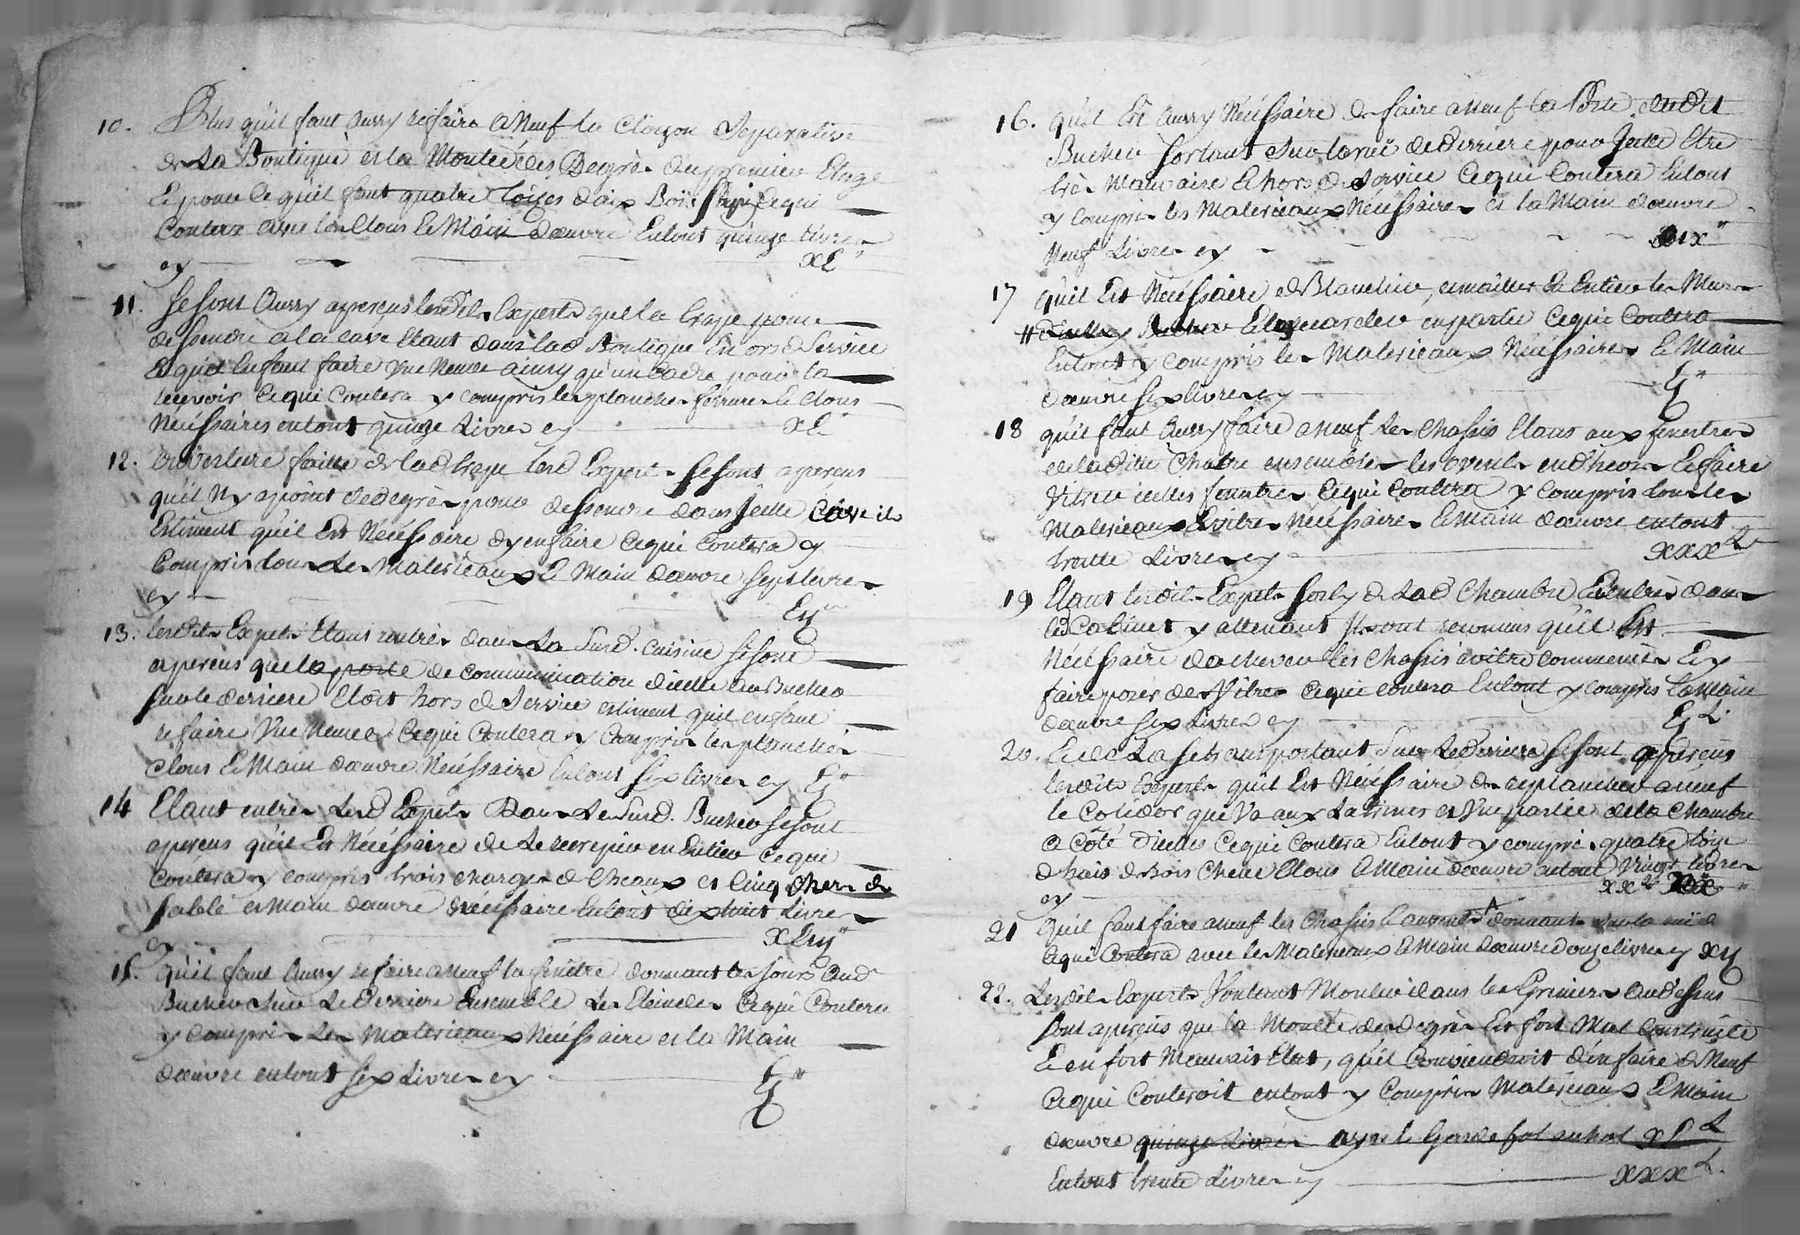 10. Plus qu'il faut Aussy refaire a Neuf la Cloizon Separative
de La Boutique et la Monteé des Degrés du premier Etage
Et pour ce quil faut quatre toizes d'aix Bois Sapin ce qui
Coutera avec les Clous Et Main d'œuvre En tout quinze Livres
cy xv"
11. Se sont Aussy aperçus lesdits Experts que la trape pour
dessendre a la cave Etant dans lad Boutique Est hors de Service
Et qu'il en faut faire Une Neuve ainsy qu'un Cadre pour la
recevoir Ce qui Coutera y compris les planches ferrure Et Clous
Nécéssaires en tout quinze Livres cy xv"
12. Ouverture faitte de lad trape lesd Experts Se sont aperçus
qu'il Ny a point de degrés pour dessendre dans Jcelle Cave ils
Estiment qu'il Est Nécéssaire d'y en faire Ce qui Coutera y
Compris tous Les Materieaux Et Main d'œuvre Sept Livres
cy vij"
13. lesdits Experts Etans rentrés dans La Susd. Cuisine Se sont
aperçus que la porte de Communication d'icelle au Bucher
Sur le derriere Etoit hors de Service estiment qu'il en faut
refaire Une Neuve Ce qui Coutera y Compris les planches
Clous Et Main d'œuvre Nécéssaire En tout Six livres cy vj"
14 Etant entrés Lesd Experts Dans Le Susd. Bucher Se sont
aperçus qu'il Est Nécéssaire de Le recrepir en Entier Ce qui
Coutera y compris trois charges de Cheaux et Cinq Chers de
Sable et Main d'œuvre Nécéssaire En tout dix huit Livres
cy xviij"
15. qu'il faut Aussy refaire a Neuf la fenêtre donnant les Jours Aud
Bucher Sur Le Derriere Ensemble Les Ce qui Coutera
y Compris Les Materieaux Nécéssaire et la Main
d'œuvre en tout Six Livres cy vj"
16. qu'il Est Aussy Nécéssaire de faire a Neuf la Porte dudit
Bucher Sortant Sur la ruë de Derriere pour Jcelle Etre
trés Mauvaise Et hors de Service Ce qui Coutera En tout
y Compris les Materieaux Nécéssaires et la Main d'œuvre
Neuf Livres cy ix"
17 qu'il Est Nécéssaire de Blanchir, et En Entier les Murs
# en partie Ce qui Coutera
En tout y compris les Materieaux Nécéssaires Et Main
d'œuvre Six livres cy vj"
18 qu'il faut Aussy faire a neuf Les Chassis Etans aux fenetres
de laditte Chabre ensemble les en dheors Et faire
Vitrer icelles fenetres Ce qui Coutera y Compris tous les
Materieaux Et vitres Nécéssaires Et Main d'œuvre en tout
trente Livres cy xxx L
19 Etant lesdits Experts Sortÿ de Lad Chambre Et Entrés dans
le Cabinet y attenant Jls ont reconnus qu'il Est
Nécéssaire d'achever les Chassis a vitre Commencés Et y
faire poser des Vitres Ce qui coutera En tout y compris La Main
d'œuvre Six Livres cy vj L
20. Et de La Se transportant Sur Le Derriere Se sont apperçus
lesdits Experts qu'il Est Nécéssaire de replancher a neuf
le Colidor que Va aux Latrines et Une partie de la Chambre
a Côté d'icelui Ce qui Coutera En tout y compris quatre toise
d'hais de Bois Chene Clous Et Main d'œuvre en tout Vingt livres
cy xx L
21 Qu'il faut faire a neuf les Chassis donnant Sur la ruë
Ce qui Coutera avec les Materieaux Et Main d'œuvre Douze livres cy xij
22. Lesdits Experts Voulant Monter dans les Greniers Au Dessus
Sont aperçus que la Monteé des degrés Est fort Mal Construite
Et en fort Mauvais Etat, qu'il Conviendroit d'en faire de Neuf
Ce qui Couteroit en tout y Compris Materieaux Et Main
d'œuvre quinze Livres avec le Garde fol en haut xv L
En tout trente Livres cy xxx L.